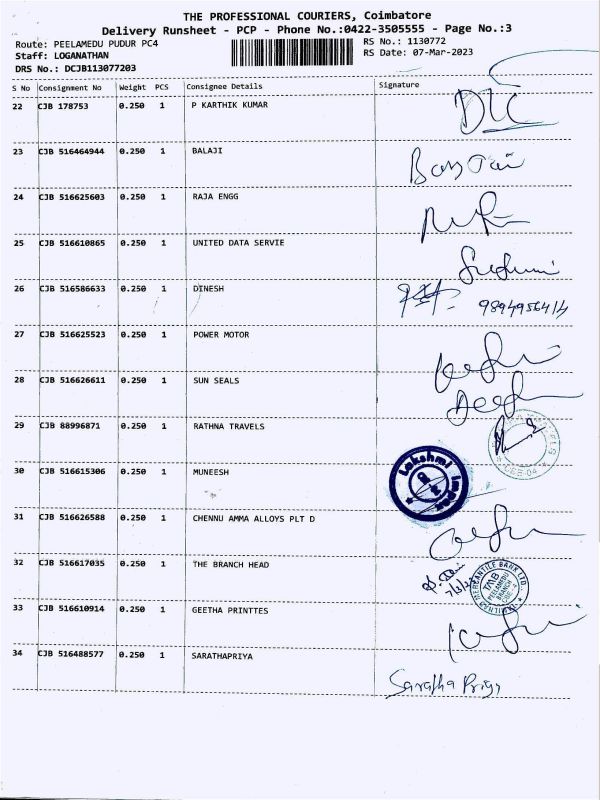 THE PROFESSIONAL COURIERS, Coimbatore
Delivery Runsheet - PCP - Phone No.:0422-3505555 - Page No.:3
Route: PEELAMEDU PUDUR PC4
RS No.: 1130772
Staff: LOGANATHAN
RS Date: 07-Mar-2023
DRS No.: DCJB113077203
S No Consignment No Weight PCS Consignee Details Signature
22 CJB 178753 0.250 1 P KARTHIK KUMAR
23 CJB 516464944 0.250 1 BALAJI
24 CJB 516625603 0.250 1 RAJA ENGG
25 CJB 516610865 0.250 1 UNITED DATA SERVIE
26 CJB 516586633 0.250 1 DINESH
27 CJB 516625523 0.250 1 POWER MOTOR
28 CJB 516626611 0.250 1 SUN SEALS
29 CJB 88996871 0.250 1 RATHNA TRAVELS
30 CJB 516615306 0.250 1 MUNEESH
Lakshmi Impex
31 CJB 516626588 0.250 1 CHENNU AMMA ALLOYS PLT D
32 CJB 516617035 0.250 1 THE BRANCH HEAD
TAMILNAD MERCANTILE BANK LTD.
TMB
PEELAMEDU
BRANCH
33 CJB 516610914 0.250 1 GEETHA PRINTTES
34 CJB 516488577 0.250 1 SARATHAPRIYA
Saratha Priya